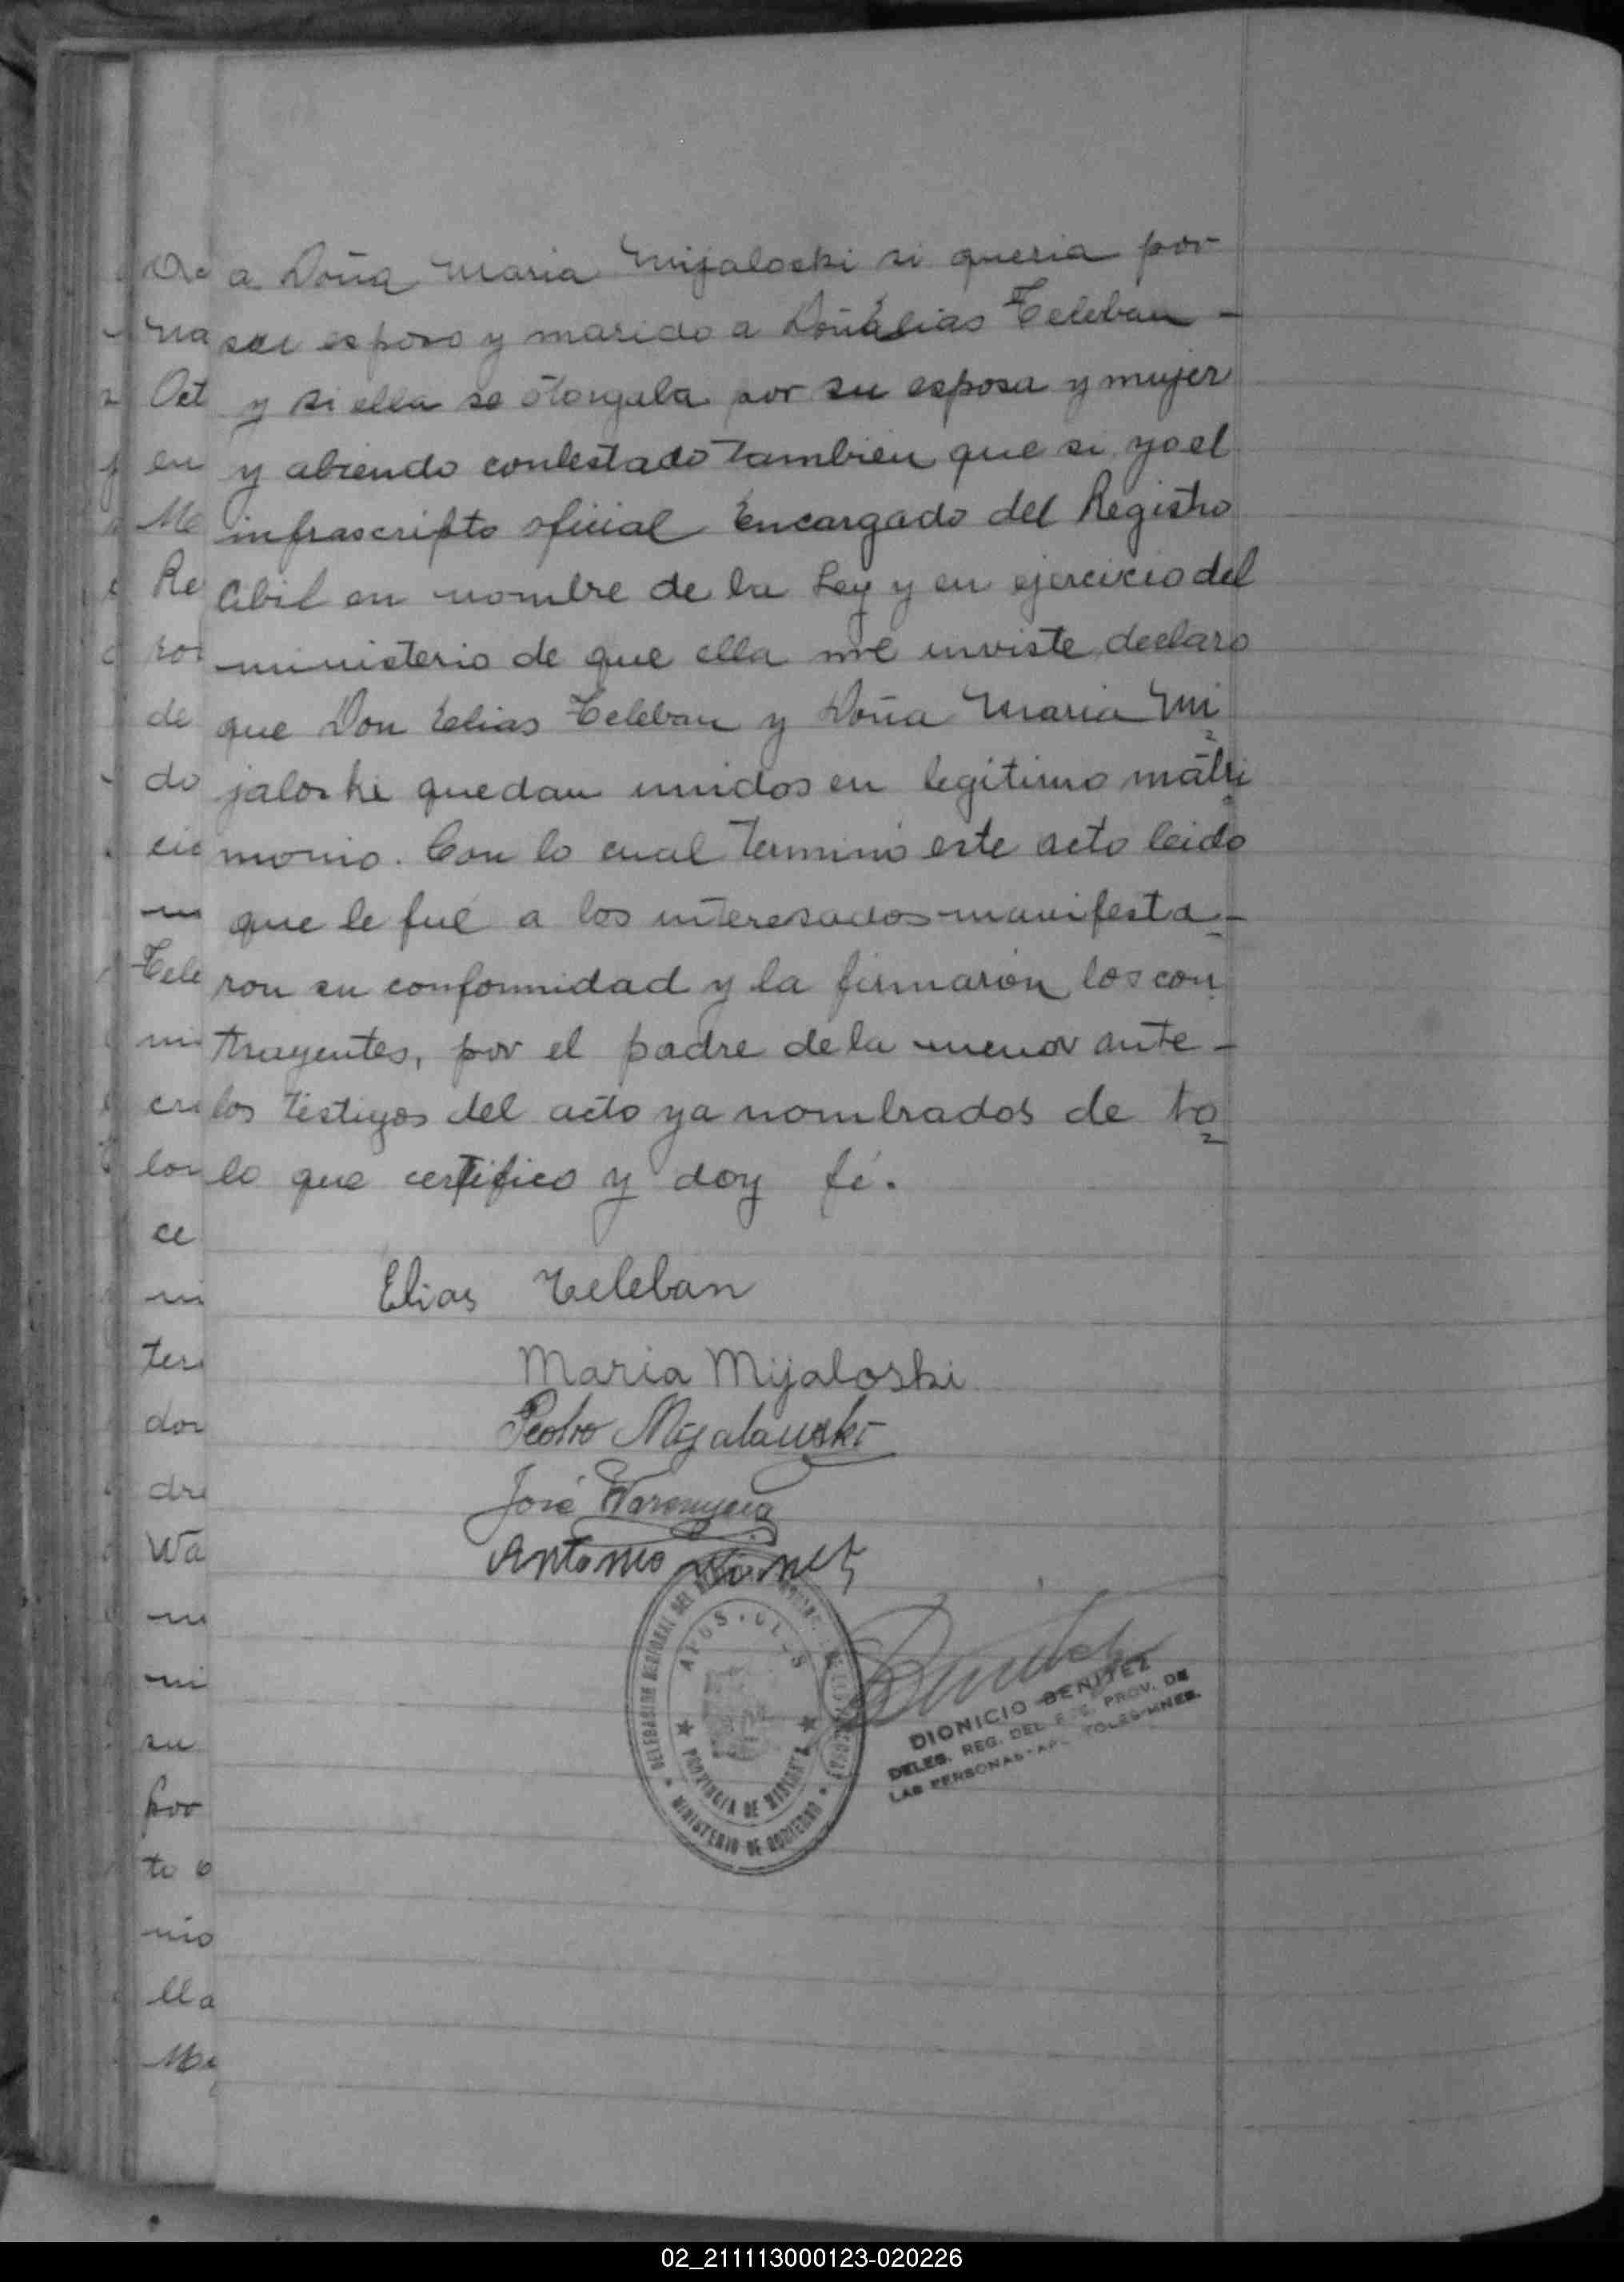 a Doña Maria Mijaloski si queria por
su esposo y marido a Doñ Elias Teleban -
y si ella se otorgaba por su esposa y mujer
y abiendo contestado tambien que si yo el
infrascripto oficial Encargado del Registro
Cibil en nombre de la Ley y en ejercicio del
ministerio de que ella me inviste declaro
que Don Elias Teleban y Doña Maria Mi
jaloski quedan unidos en legitimo matri
monio. Con lo cual terminó este acto leido
que le fué a los interesados manifesta-
ron su conformidad y la firmarón los con
trayentes, por el padre de la menor ante -
los testigos del acto ya nombrados de to
lo que certifico y doy fé.
Elias Teleban
Maria Mijaloski
Pedro Mijalauski
José
Antonio
APOS
PROVINCIA DE MISIONES
MINISTERIO DE GOBIERNO
DIONICIO BENITEZ
DELEG. REG. DEL REG. PROV. DE
LAS PERSONAS - MNES.
De
na
Oct
en
Me
Re
ros
de
do
cie
Tele
mi
cri
lon
ce
mi
ter
dor
dre
Wa
mi
su
por
to
nio
lla
02_211113000123-020226